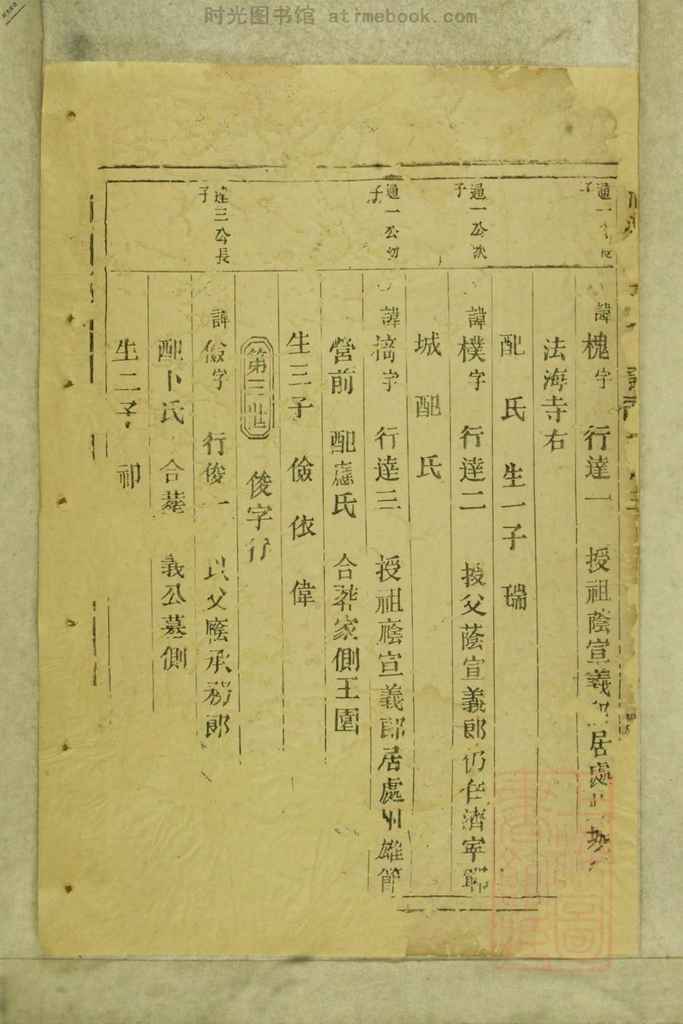 时光图书馆 atimebook.com
通一公長子
諱槐字 行達一 授祖蔭宣義 居處
法海寺右
配 氏 生一子 瑞
通一公次子
諱樸字 行達二 授父蔭宣義郎仍任濟寧
城 配氏
通一公幼子
諱摛字 行達三 授祖蔭宣義郎居處州雄節
營前 配應氏 合葬家側王園
生三子 儉 依 偉
第三世 俊字行
達三公長子
諱儉字 行俊一 以父廕承務郎
配卜氏 合墓 義公墓側
生二子 祁